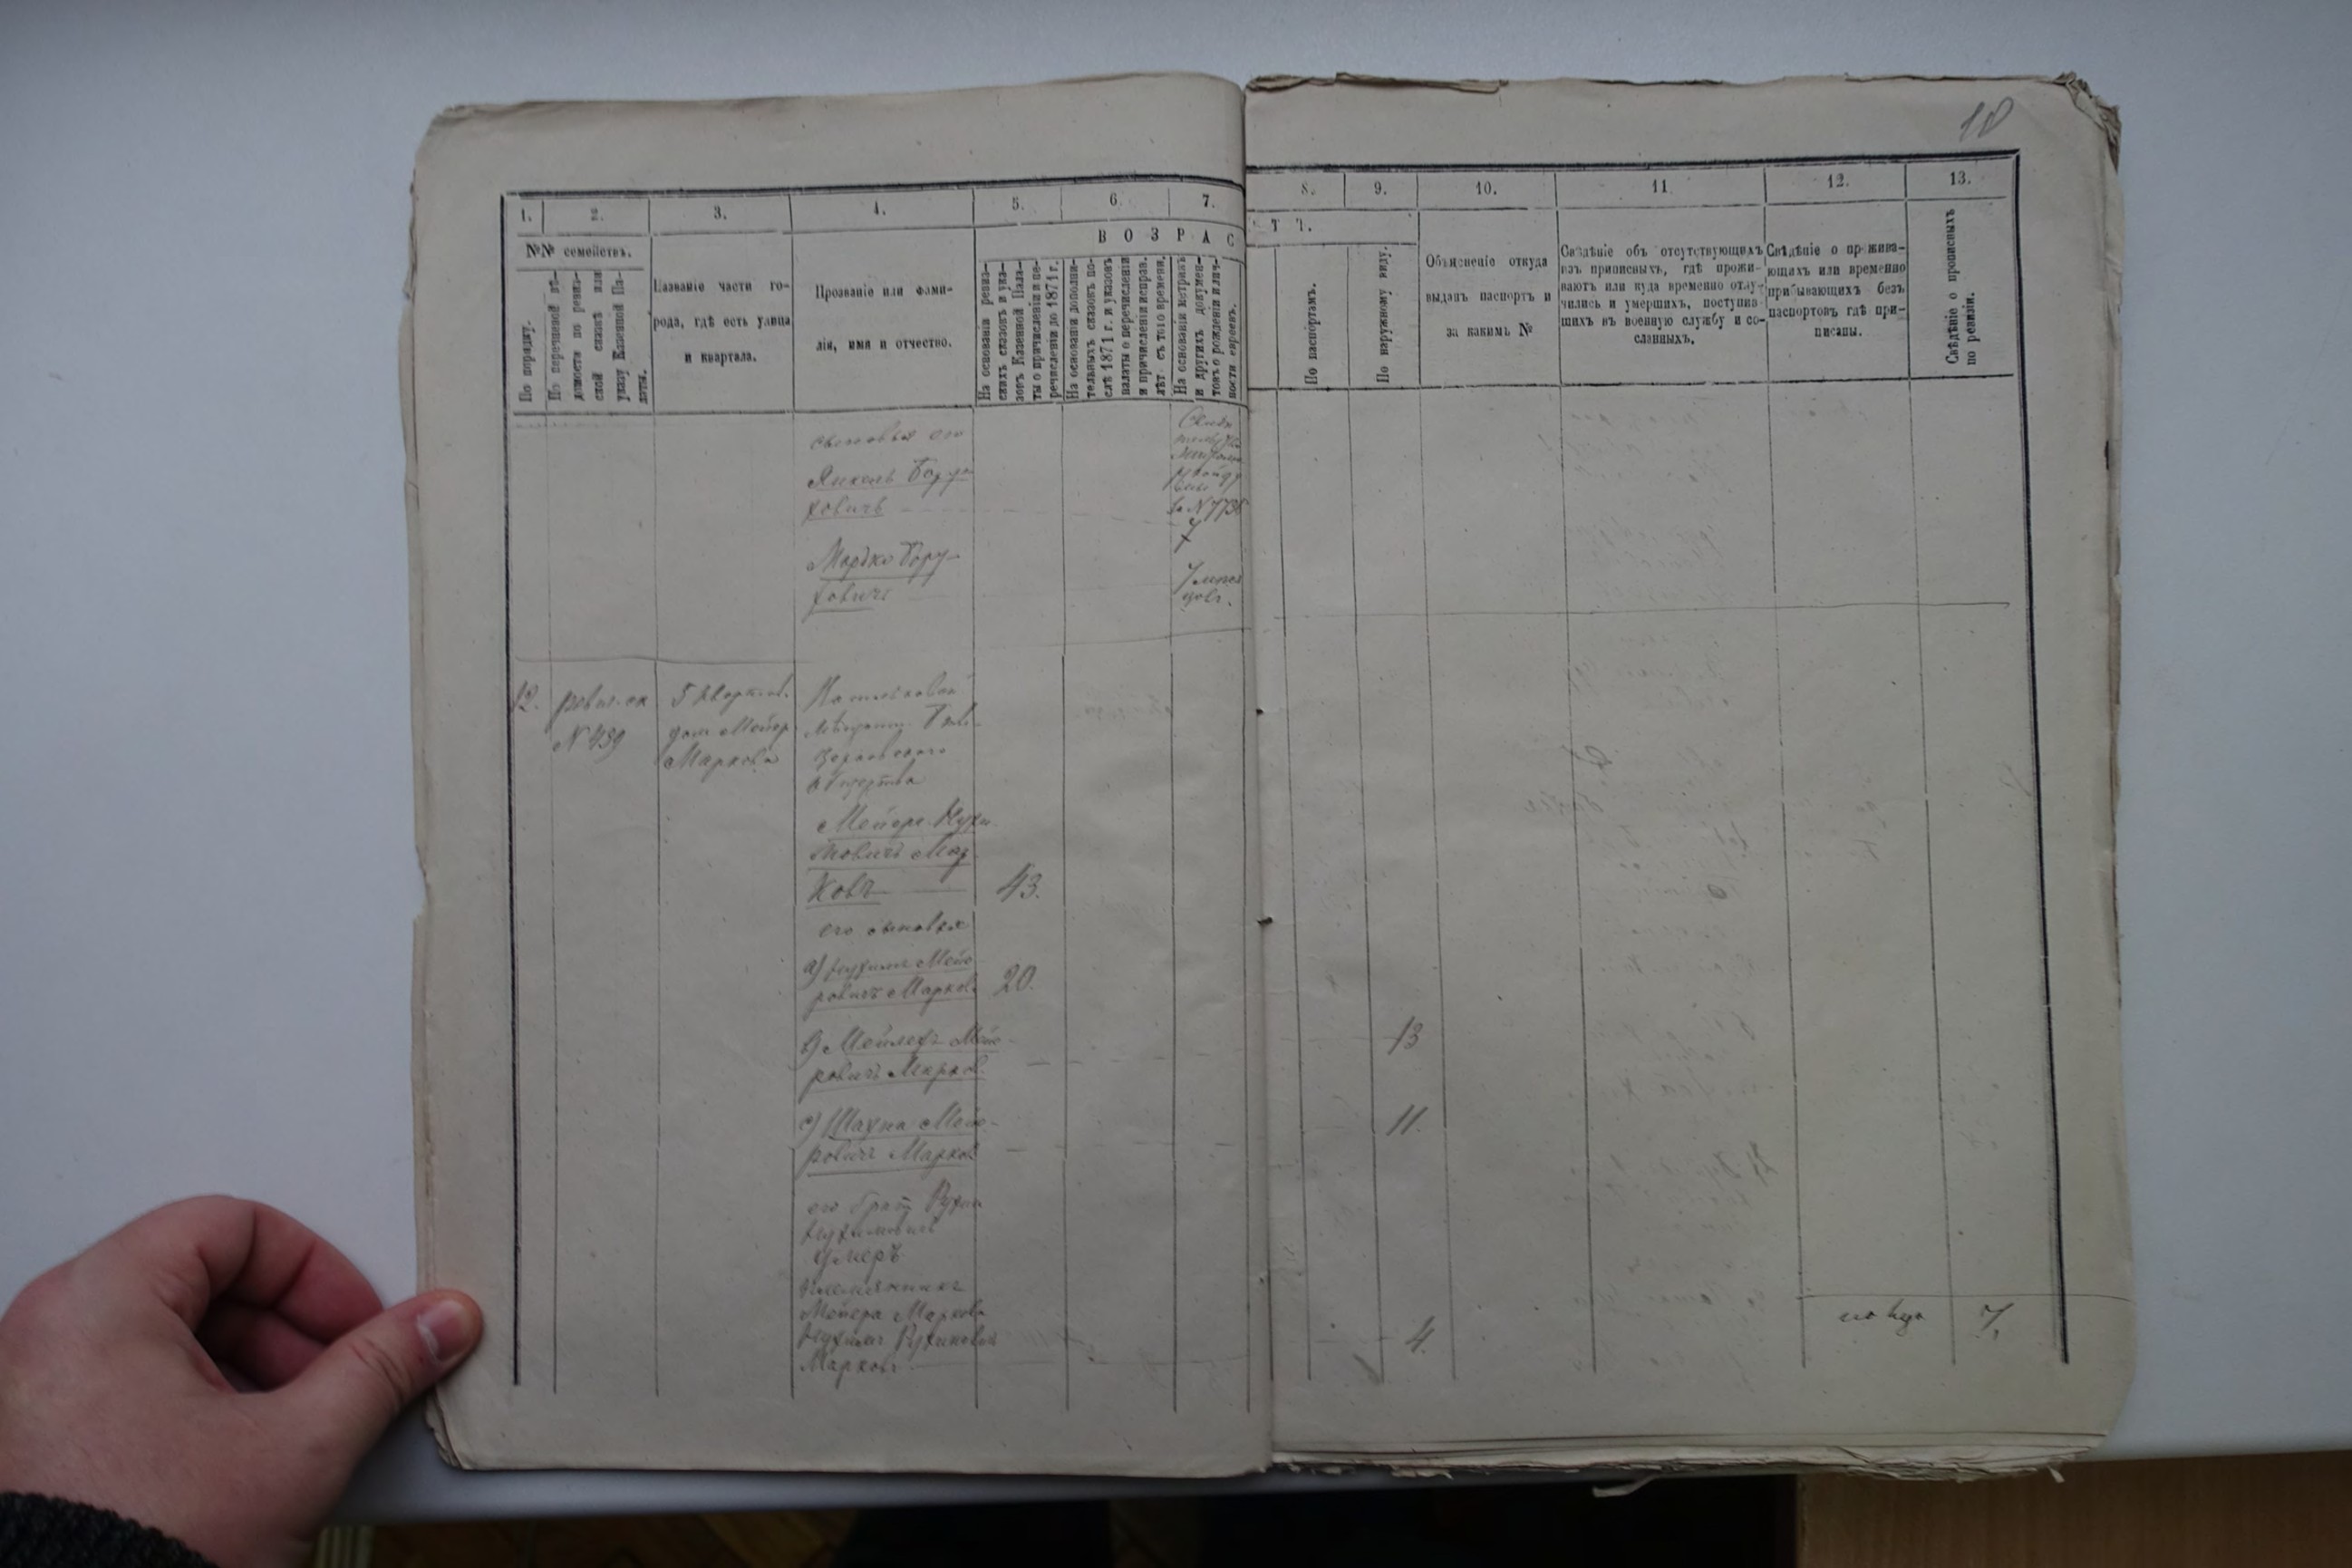 18
1.
2.
3.
4.
5.
6.
7.
8.
9.
10.
11
12.
13.
№№ семействъ.
В О З Р А С
Т Ъ.
По порядку.
По перечневой вѣ-
домости по ревиз-
ской сказкѣ или
указу Казенной Па-
латы.
Названіе части го-
рода, гдѣ есть улица
и квартала.
Прозваніе или фами-
лія, имя и отчество.
На основаніи ревиз-
скихъ сказокъ и ука-
зовъ Казенной Пала-
ты о причисленіи и пе-
речисленіи до 1871 г.
На основаніи дополни-
тельныхъ сказокъ по-
слѣ 1871 г. и указовъ
палаты о перечисленіи
и причисленіи исправ.
лѣт съ того времени.
На основаніи метрикъ
и другихъ докумен-
товъ о рожденіи и лич-
ности евреевъ.
По паспортамъ.
По наружному виду.
Объясненіе откуда
выданъ паспортъ и
за какимъ №
Свѣдѣніе объ отсутствующихъ
изъ приписныхъ, гдѣ прожи-
ваютъ или куда временно отлу-
чились и умершихъ, поступив-
шихъ въ военную службу и со-
сланныхъ.
Свѣдѣніе о прожива-
ющихъ или временно
прибывающихъ безъ
паспортовъ гдѣ при-
писаны.
Свѣдѣніе о прописныхъ
по ревизіи.
сыновья его
Янкель Бору-
ховичъ
за № 7735
7
Мордко Бору-
ховичъ
7 меся
цовъ.
12.
ревиз. ск
№ 439
5 квартал.
дом Мейер
Маркова
общества
Мейеръ Нухи-
мовичъ Мар-
ковъ
43.
его сыновья
а) Нухимъ Мейе-
ровичъ Марков.
20.
в) Мейлехъ Мейе-
ровичъ Марков.
13
с) Шахна Мейе-
ровичъ Марков
11.
его братъ Рухин
Нухимовичъ
умеръ
племянникъ
Мейера Маркова
Нухимъ Рухиновъ
Марковъ
4.
7.